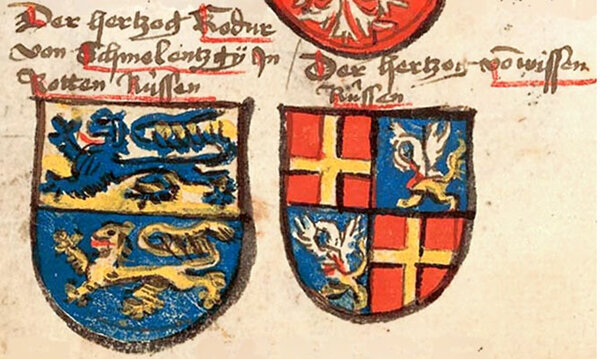 Der hertzog Fodur
von Schmolentzgÿ In
Rotten Rüssen
Der hertzog vō wissen
Rüssen